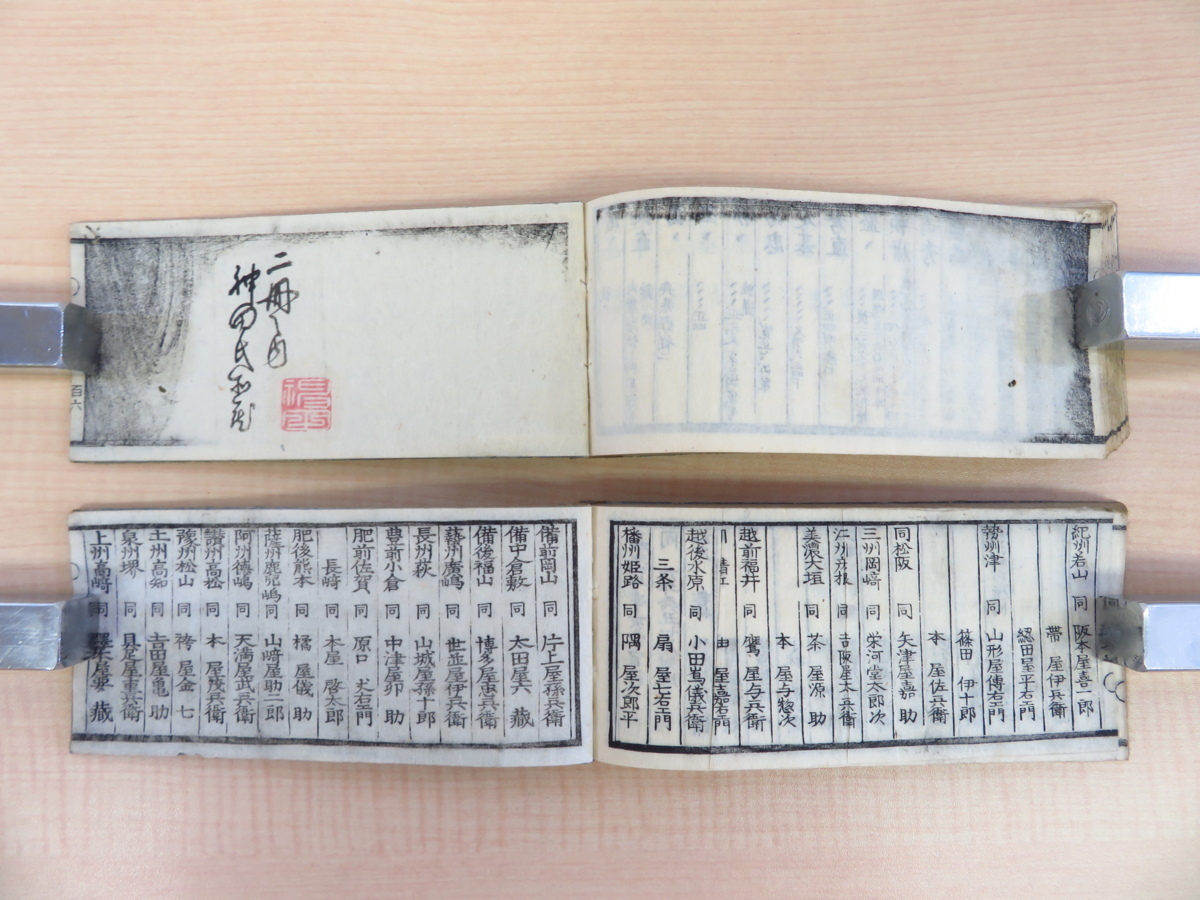 二冊之内
神田氏
百六
紀州若山 同 阪本屋喜一郎
帯 屋伊兵衛
総田屋平右エ門
勢州津 同 山形屋傳右エ門
篠田 伊十郎
本 屋佐兵衛
同松阪 同 矢津屋嘉 助
三州岡崎 同 栄河堂太郎次
江州彦根 同 吉阪屋太兵衛
美濃大垣 同 茶 屋源 助
本 屋与惣次
越前福井 同 鷹 屋与兵衛
屋嘉右エ門
越後水原 同 小田嶌儀兵衛
三条 扇 屋七右エ門
播州姫路 同 隅 屋次郎平
備前岡山 同 片上屋孫兵衛
備中倉敷 同 太田屋六 藏
備後福山 同 博多屋恵兵衛
藝州廣嶋 同 世並屋伊兵衛
長州萩 同 山城屋孫十郎
豊前小倉 同 中津屋卯 助
肥前佐賀 同 原口 右エ門
長崎 同 本屋 啓太郎
肥後熊本 同 橘 屋儀 助
薩州鹿児嶋 同 山崎屋助二郎
阿州徳嶋 同 天満屋武兵衛
讃州高松 同 本 屋茂兵衛
豫州松山 同 袴 屋金 七
土州高知 同 吉田屋亀 助
泉州堺 同 具足屋重兵衛
上州高崎 同 澤本屋要 藏